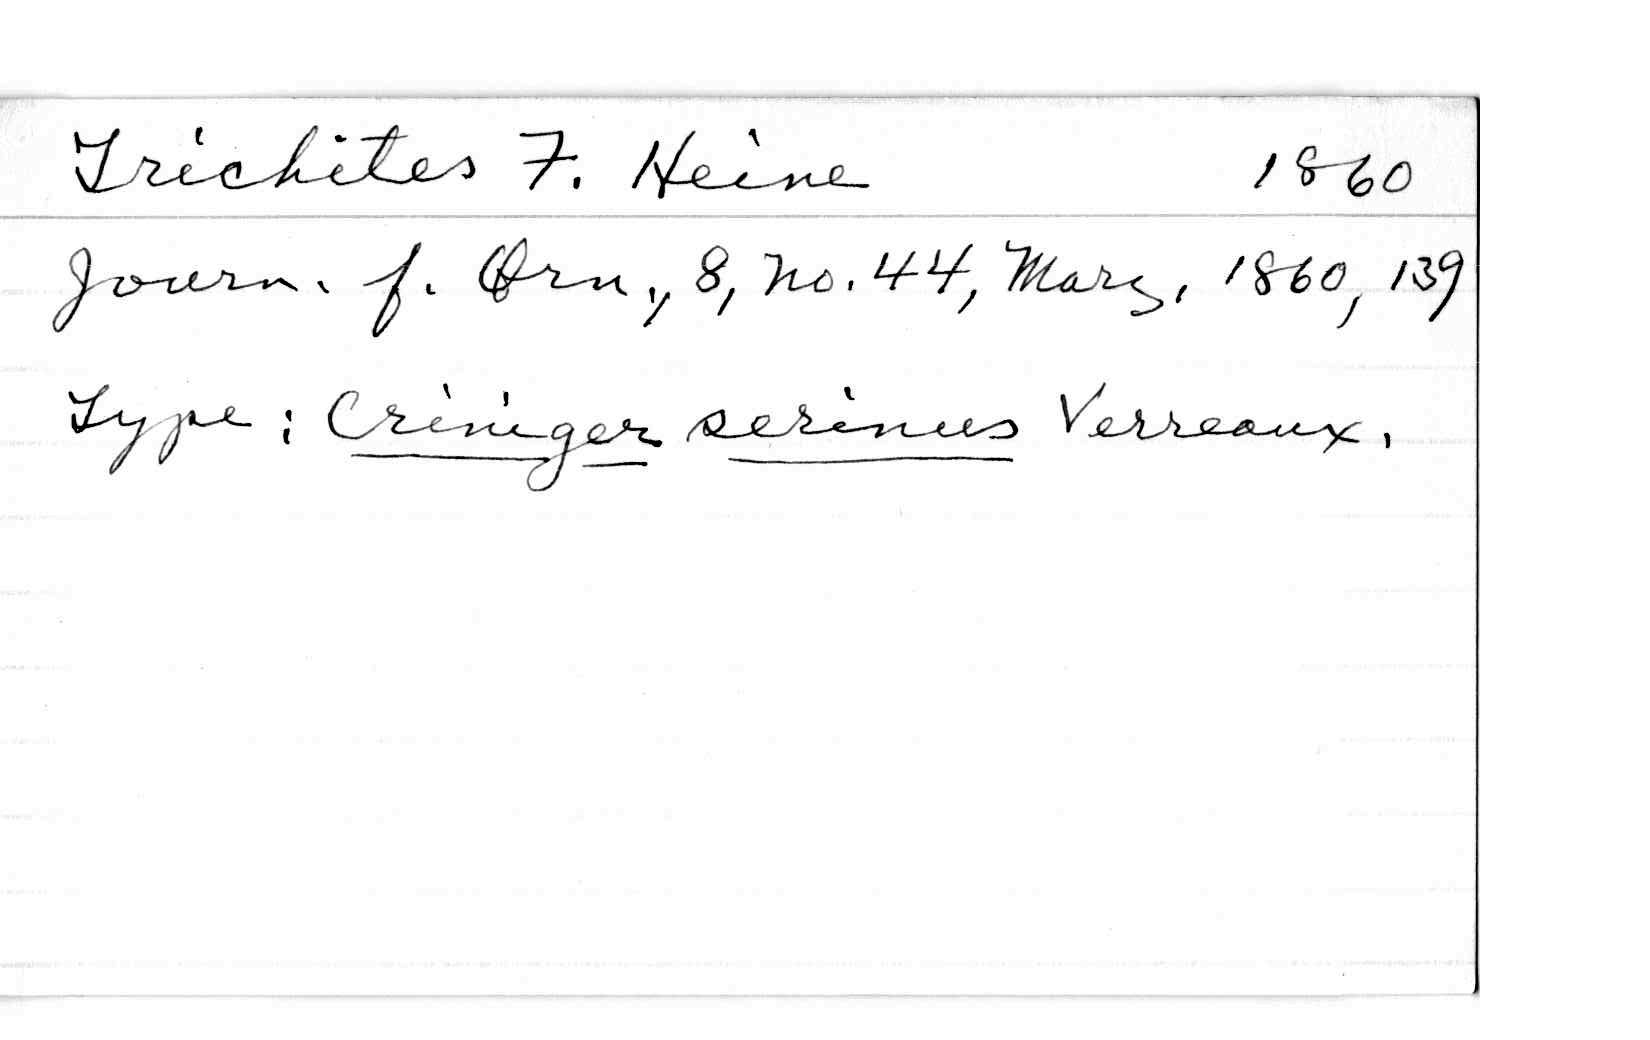 Trichites F. Heine 1860
Journ. f. Orn., 8, no. 44, Marz, 1860, 139
Type: Criniger serinus Verreaux.